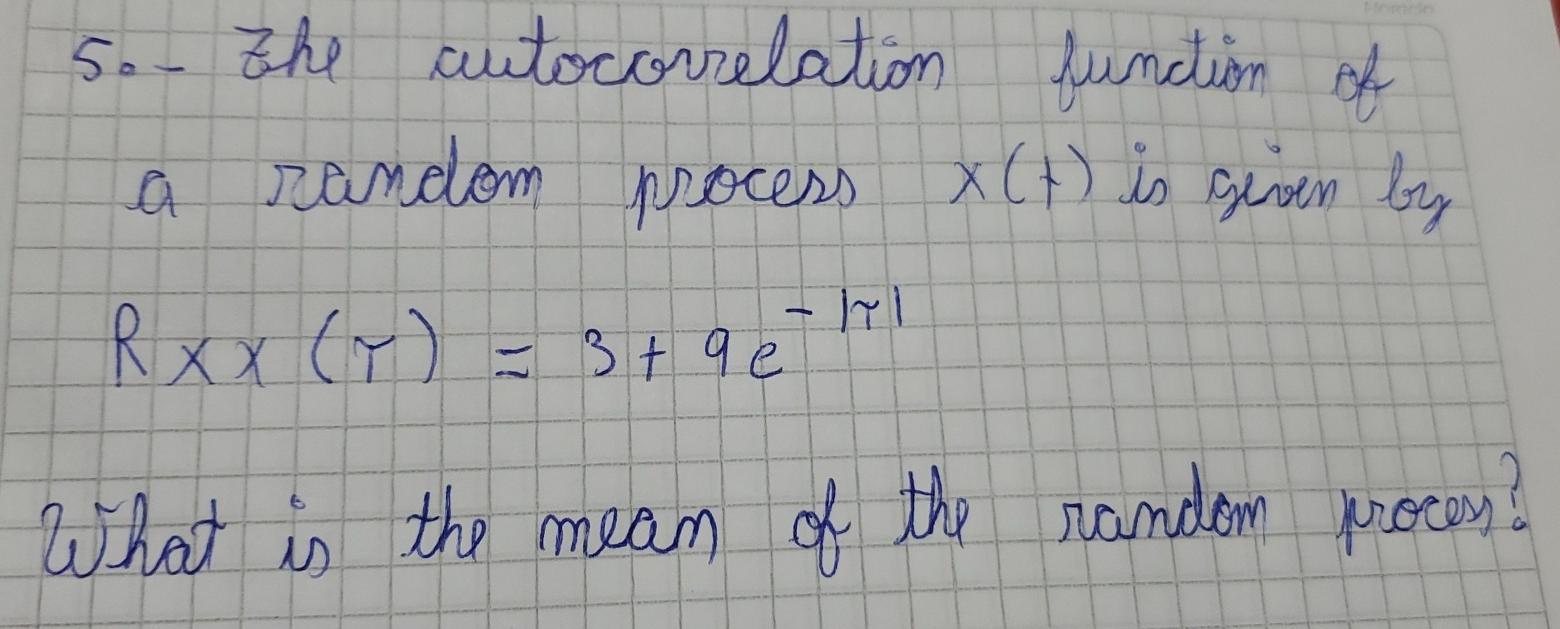 5.- The autocorrelation function of
a random process x(t) is given by
Rxx(τ) = 3 + 9e^-|τ|
What is the mean of the random proces?